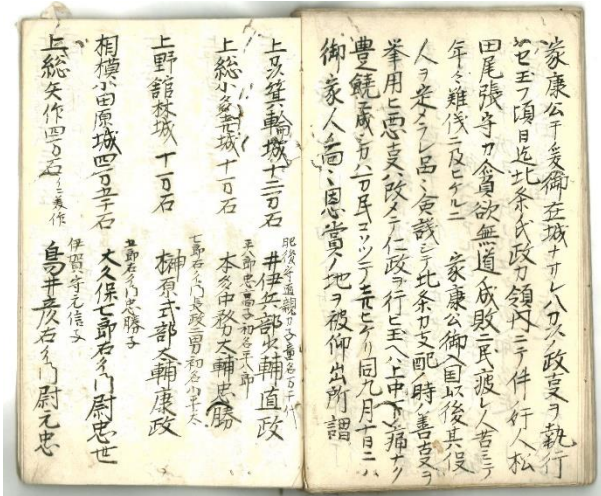 家康公干爰御在城ナサレ八方ノ政事ヲ執行
セ玉フ頃日迄北条氏政カ領内ニテ件ノ奸人松
田尾張守カ貪欲無道ノ成敗ニ民疲レ人苦ミテ
年々難儀ニ及ヒケルニ　家康公御入国以後其役
人ヲ定メラレ品々僉議シテ北条カ支配ノ時ノ善事ヲ
挙用ヒ悪事ハ改メテ仁政ヲ行ヒ玉ヘハ上中下ノ痛ナク
豊饒ノ成シ方ハ万民コソツテ売ヒケリ同九月十日ニハ
御家人面々恩賞ノ地ヲ被仰出所謂
上野箕輪城十二万石
肥後守直親カ子童名万千代
井伊兵部少輔直政
上総小多喜城十万石
平八郎忠高子初名平八郎
本多中務大輔忠勝
上野館林城　十万石
七郎右衛門長政二男初名小平太
榊原式部太輔康政
相模小田原城四万五千石
五郎右衛門忠勝子
大久保七郎右衛門尉忠世
上総矢作四万石
伊賀守元信子
鳥井彦右衛門尉元忠